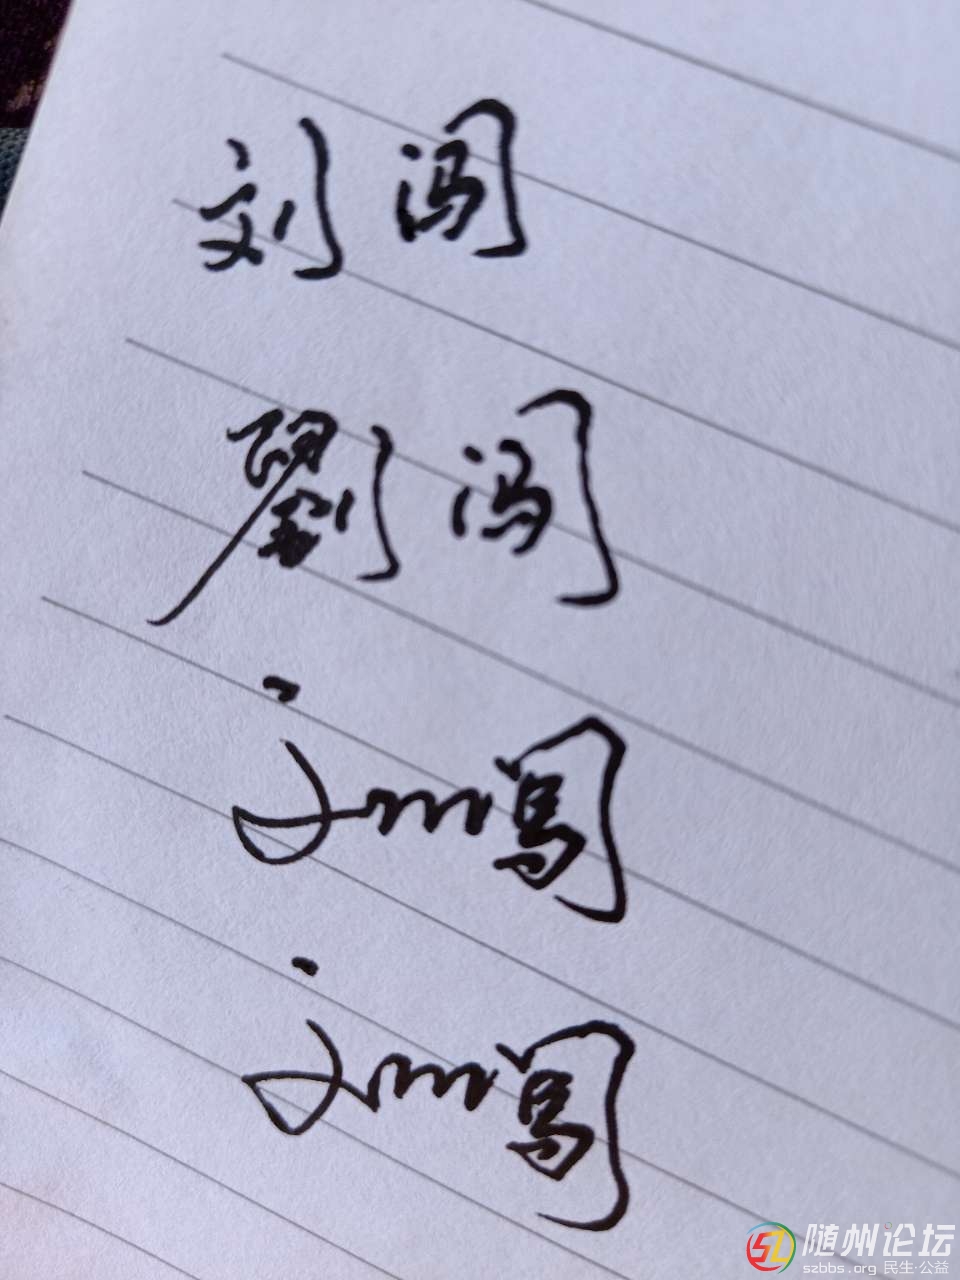 刘闯
劉闯
刘闯
刘闯
随州论坛
szbbs.org 民生·公益